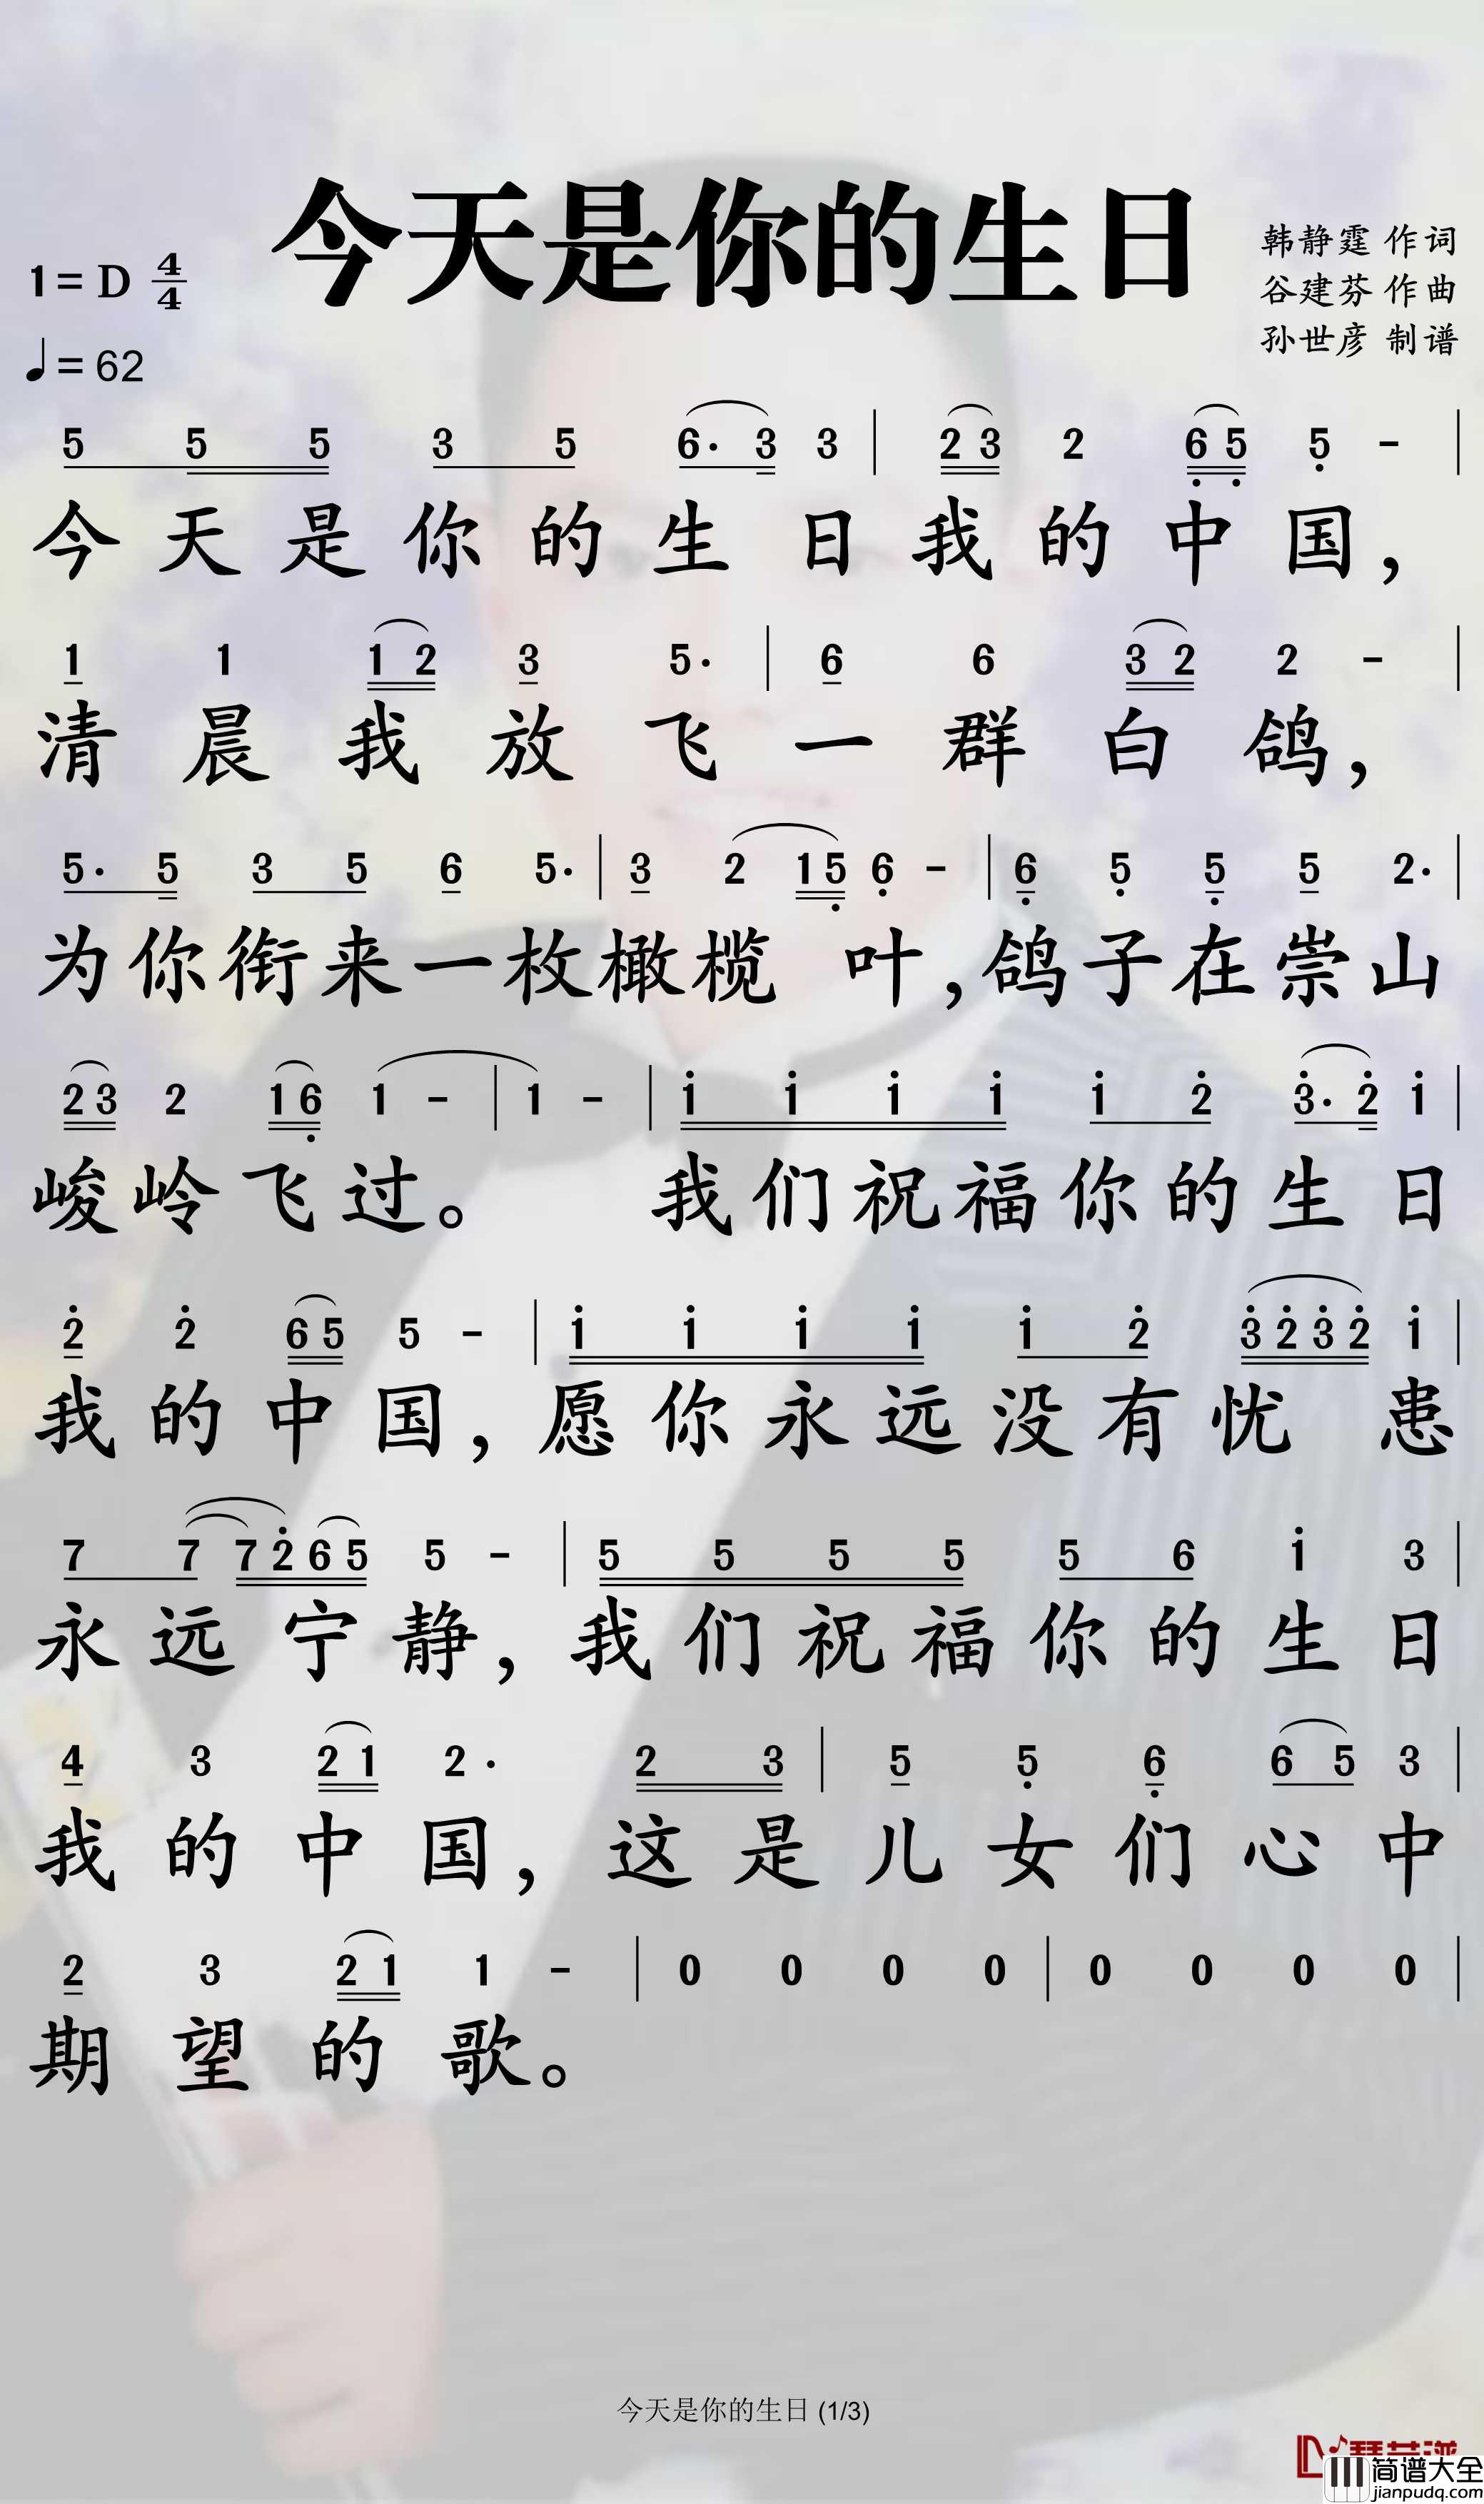 今天是你的生日
韩静霆 作词
1=D 4/4
谷建芬 作曲
孙世彦 制谱
♩=62
5 5 5 3 5 6· 3 3 | 2 3 2 6̣ 5̣ 5̣ - |
今天是你的生日我的中国，
1 1 1 2 3 5· | 6 6 3 2 2 - |
清晨我放飞一群白鸽，
5· 5 3 5 6 5· | 3 2 1 5̣ 6̣ - | 6̣ 5̣ 5̣ 5 2· |
为你衔来一枚橄榄 叶，鸽子在崇山
2 3 2 1 6̣ 1 - | 1 - | 1̇ 1̇ 1̇ 1̇ 1̇ 2̇ 3̇· 2̇ 1̇ |
峻岭飞过。 我们祝福你的生日
2̇ 2̇ 6 5 5 - | 1̇ 1̇ 1̇ 1̇ 1̇ 2̇ 3̇ 2̇ 3̇ 2̇ 1̇ |
我的中国，愿你永远没有忧患
7 7 7 2̇ 6 5 5 - | 5 5 5 5 5 6 1̇ 3 |
永远宁静，我们祝福你的生日
4 3 2 1 2· 2 3 | 5 5̣ 6̣ 6 5 3 |
我的中国，这是儿女们心中
2 3 2 1 1 - | 0 0 0 0 | 0 0 0 0 |
期望的歌。
今天是你的生日 (1/3)
简谱大全
jianpudq.com